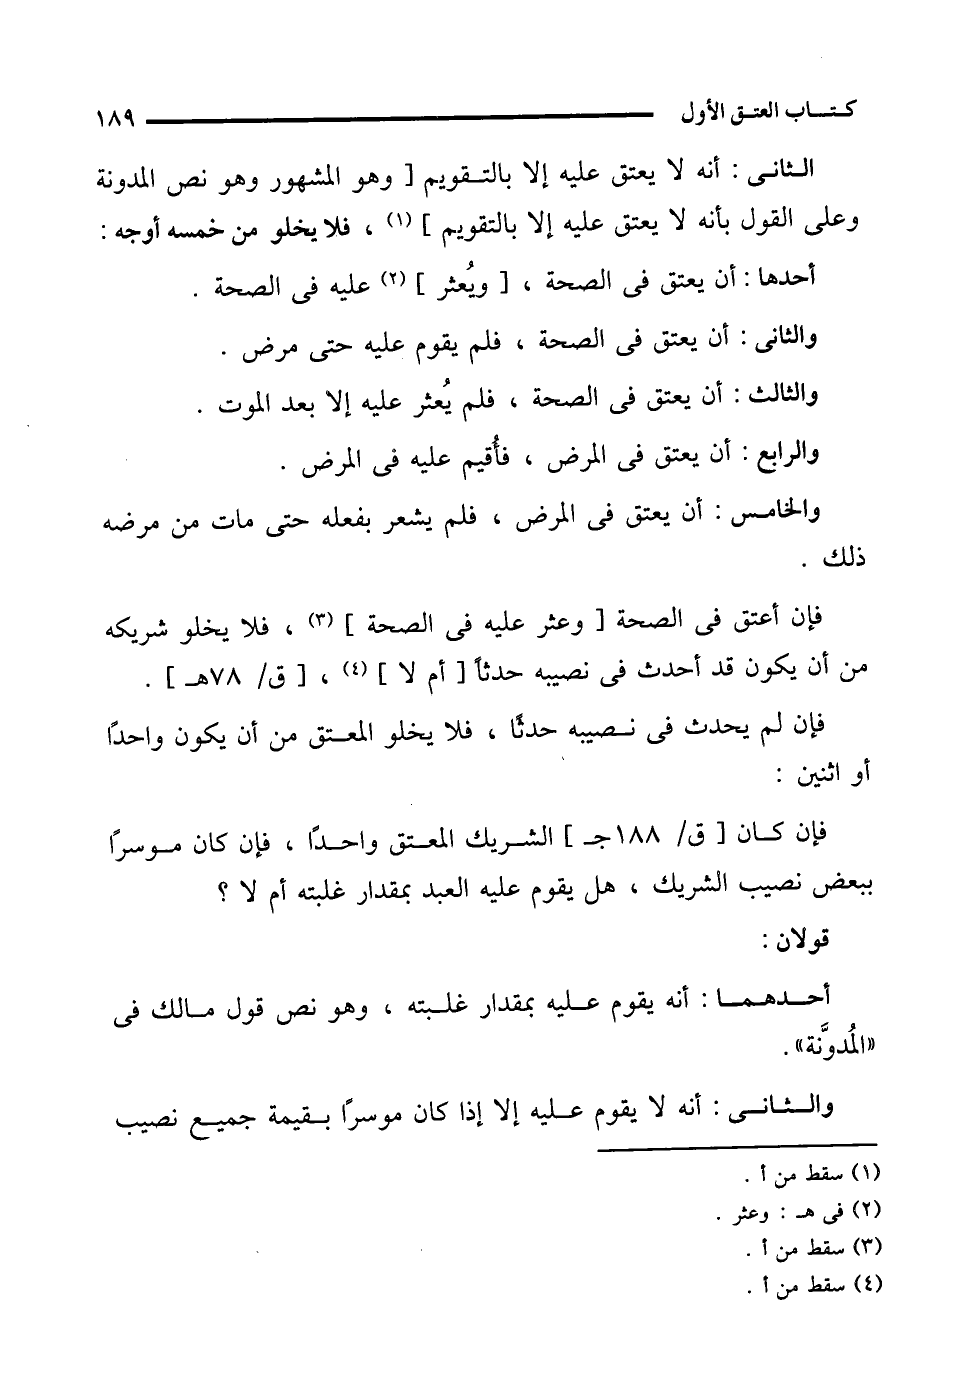 كتاب العتق الأول ١٨٩
الثانى : أنه لا يعتق عليه إلا بالتقويم [ وهو المشهور وهو نص المدونة
وعلى القول بأنه لا يعتق عليه إلا بالتقويم ] (١) ، فلا يخلو من خمسه أوجه :
أحدها : أن يعتق فى الصحة ، [ ويُعثر ] (٢) عليه فى الصحة .
والثانى : أن يعتق فى الصحة ، فلم يقوم عليه حتى مرض .
والثالث : أن يعتق فى الصحة ، فلم يُعثر عليه إلا بعد الموت .
والرابع : أن يعتق فى المرض ، فأُقيم عليه فى المرض .
والخامس : أن يعتق فى المرض ، فلم يشعر بفعله حتى مات من مرضه
ذلك .
فإن أعتق فى الصحة [ وعثر عليه فى الصحة ] (٣) ، فلا يخلو شريكه
من أن يكون قد أحدث فى نصيبه حدثاً [ أم لا ] (٤) ، [ ق/ ٧٨هـ ] .
فإن لم يحدث فى نصيبه حدثًا ، فلا يخلو المعتق من أن يكون واحدًا
أو اثنين :
فإن كان [ ق/ ١٨٨جـ ] الشريك المعتق واحدًا ، فإن كان موسرًا
ببعض نصيب الشريك ، هل يقوم عليه العبد بمقدار غلبته أم لا ؟
قولان :
أحدهما : أنه يقوم عليه بمقدار غلبته ، وهو نص قول مالك فى
«المُدوَّنة» .
والثانى : أنه لا يقوم عليه إلا إذا كان موسرًا بقيمة جميع نصيب
(١) سقط من أ .
(٢) فى هـ : وعثر .
(٣) سقط من أ .
(٤) سقط من أ .